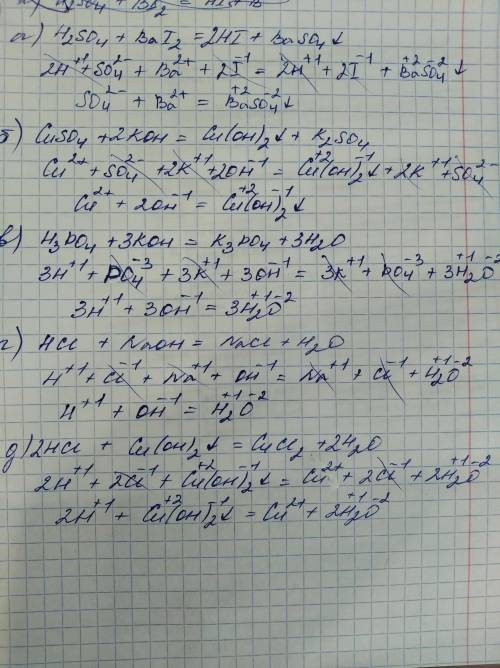 а) H₂SO₄ + BaI₂ = 2HI + BaSO₄↓
2H⁺¹ + SO₄²⁻ + Ba²⁺ + 2I⁻¹ = 2H⁺¹ + 2I⁻¹ + Ba⁺²SO₄⁻²↓
SO₄²⁻ + Ba²⁺ = Ba⁺²SO₄⁻²↓
б) CuSO₄ + 2KOH = Cu(OH)₂↓ + K₂SO₄
Cu²⁺ + SO₄²⁻ + 2K⁺¹ + 2OH⁻¹ = Cu⁺²(OH)₂⁻¹↓ + 2K⁺¹ + SO₄²⁻
Cu²⁺ + 2OH⁻¹ = Cu⁺²(OH)₂⁻¹↓
в) H₃PO₄ + 3KOH = K₃PO₄ + 3H₂O
3H⁺¹ + PO₄⁻³ + 3K⁺¹ + 3OH⁻¹ = 3K⁺¹ + PO₄⁻³ + 3H₂⁺¹O⁻²
3H⁺¹ + 3OH⁻¹ = 3H₂⁺¹O⁻²
г) HCl + NaOH = NaCl + H₂O
H⁺¹ + Cl⁻¹ + Na⁺¹ + OH⁻¹ = Na⁺¹ + Cl⁻¹ + H₂⁺¹O⁻²
H⁺¹ + OH⁻¹ = H₂⁺¹O⁻²
д) 2HCl + Cu(OH)₂↓ = CuCl₂ + 2H₂O
2H⁺¹ + 2Cl⁻¹ + Cu⁺²(OH)₂⁻¹↓ = Cu²⁺ + 2Cl⁻¹ + 2H₂⁺¹O⁻²
2H⁺¹ + Cu⁺²(OH)₂⁻¹↓ = Cu²⁺ + 2H₂⁺¹O⁻²